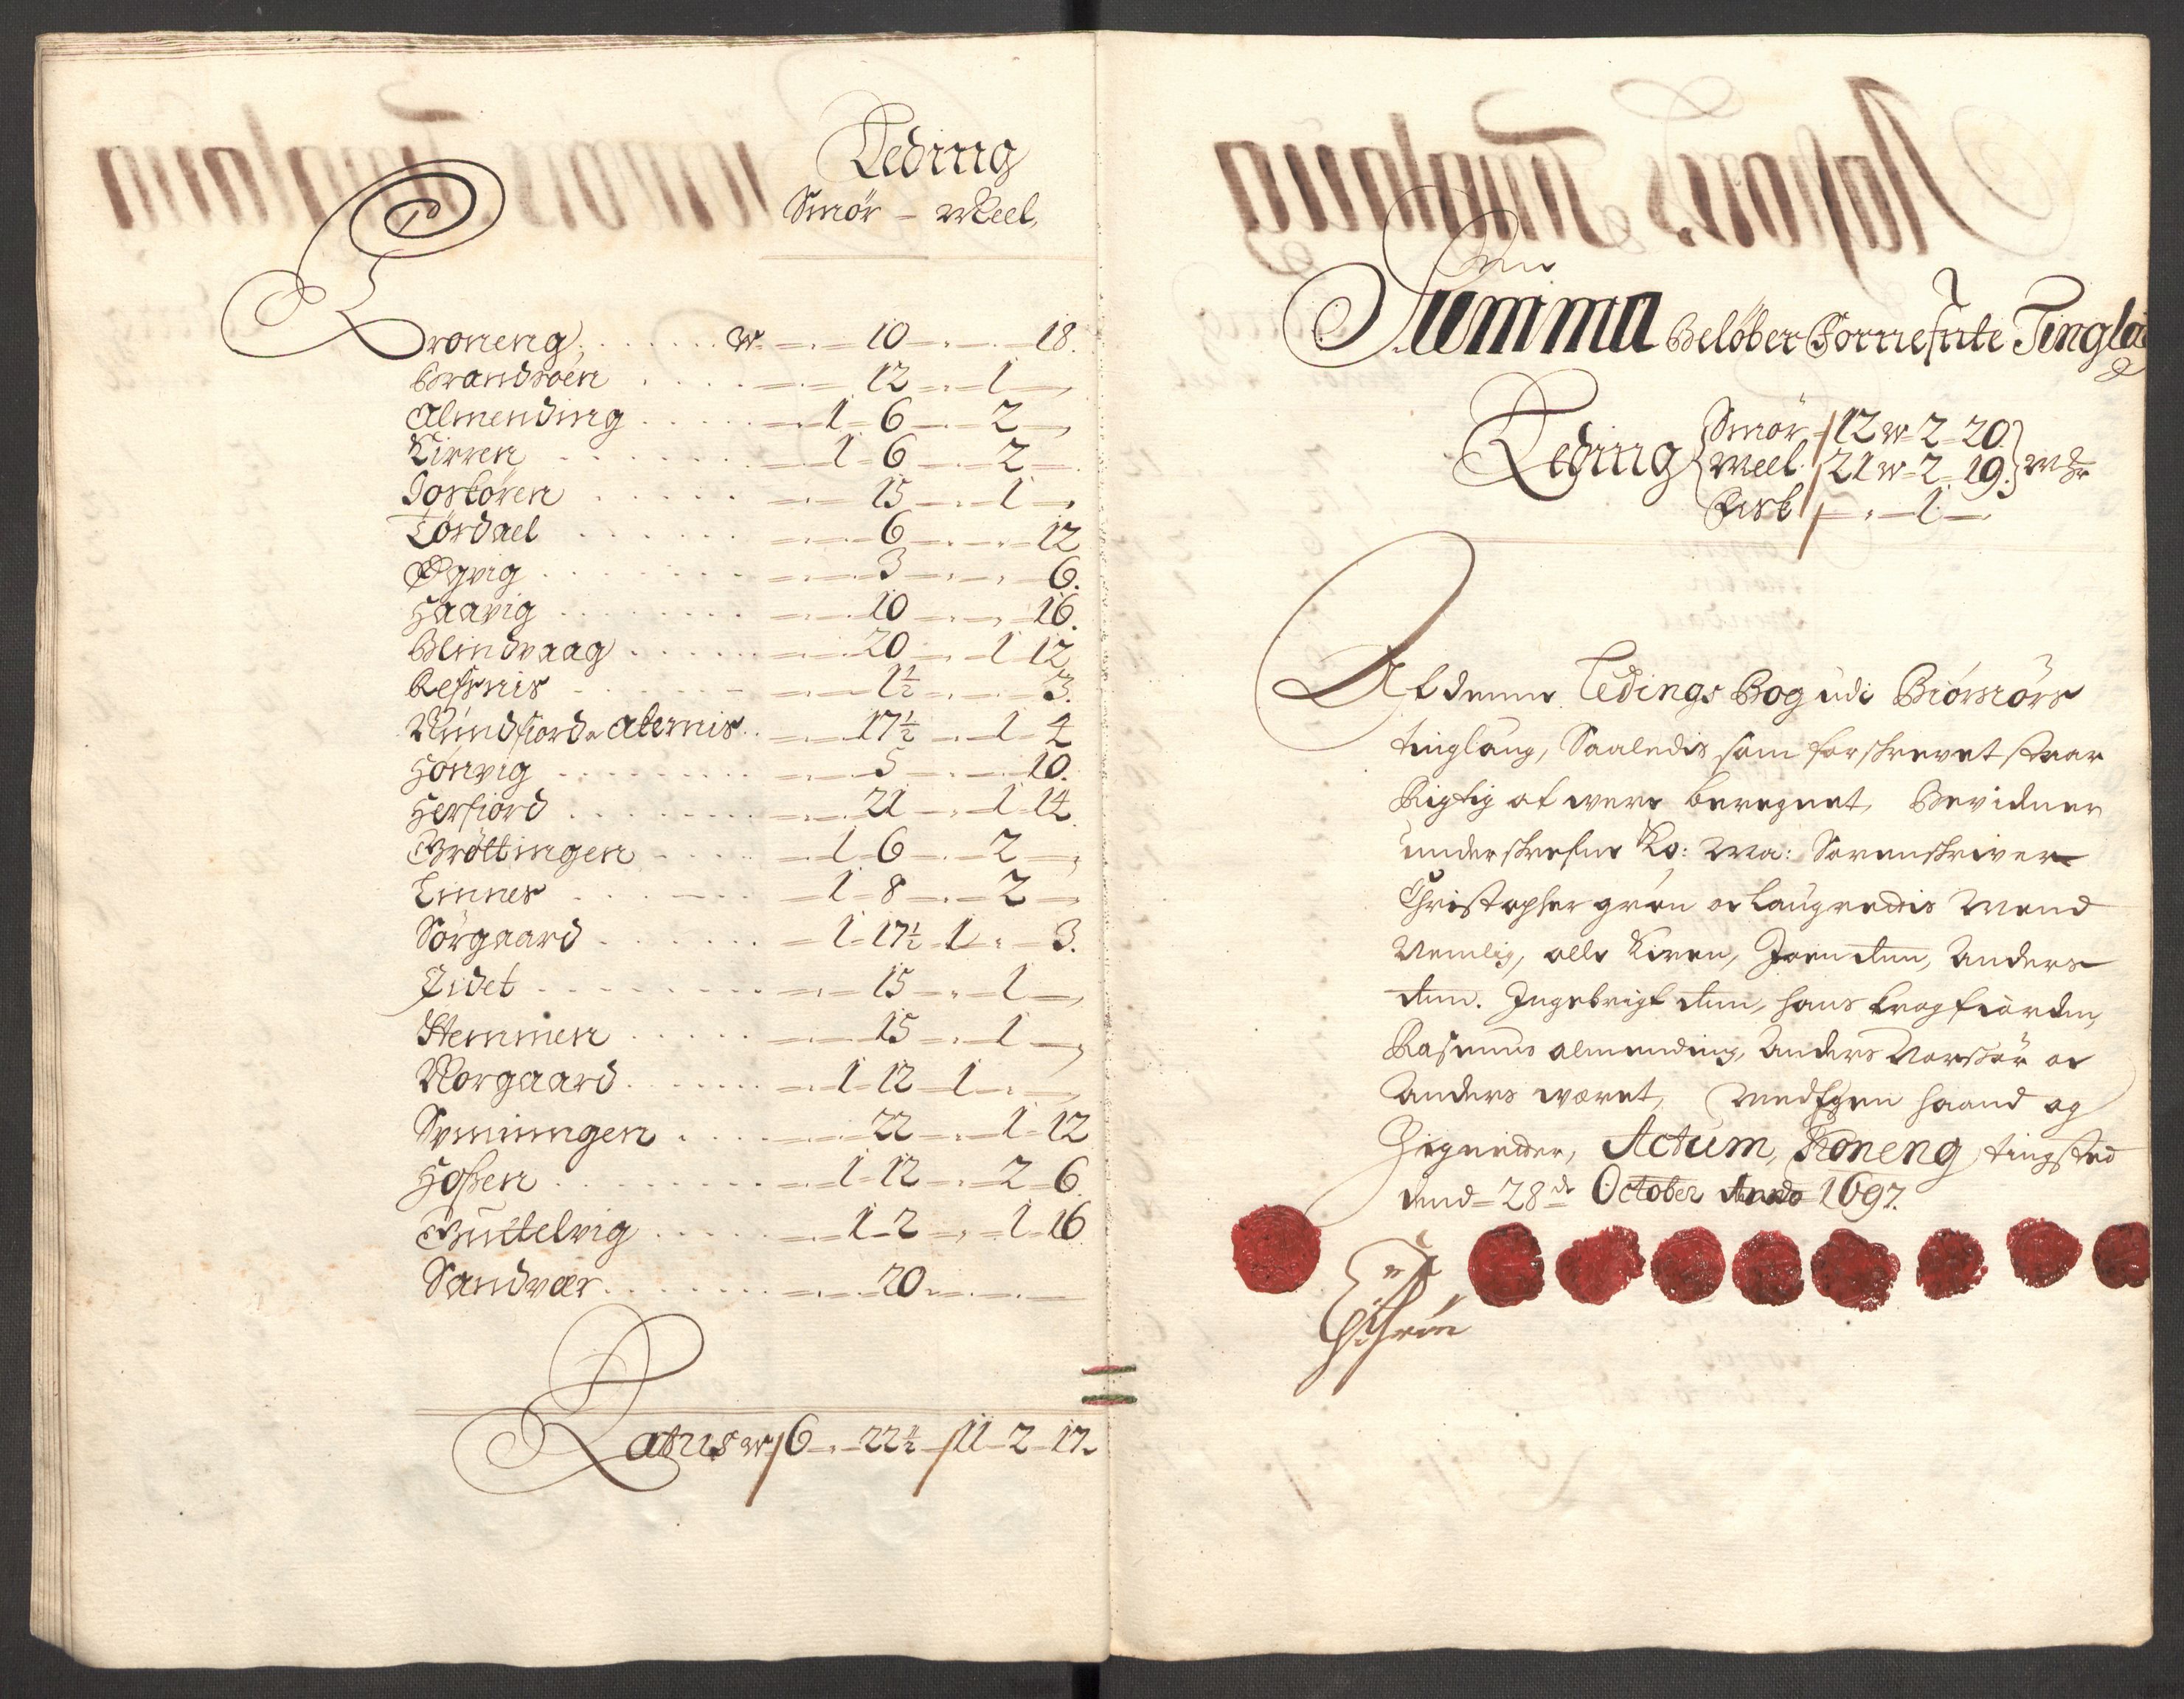 Leding
Smör – Meel
Kroneng, W. 10 18.
Brandsoen 12 1
Almending 1 6 2
Kirren 1 6 2
Joskören 15 1
Tördael 6 12
Ogvig 3 6.
Haavig 10 16.
Blindvaag 20 1 12
Refsnis 1½ 3.
Mundfiord. Aternis 17½ 1 4
Honvig 5 10.
Herfiord 21 1 14
Gröttingen 1 6 2
Linnes 1 8 2
Sörgaard 1 17½ 1 3.
Eidet 15 1
Stemmen 15 1
Norgaard 1 12 1
Synningen 22 1 12
Hofsen 1 12 2 6
Guttelvig 1 2 1 16
Sandvær 20
Latus W 6 22½ 11 2 17
Summa Beløber Fornefnte Tingla
Leding Smör 12 W 2 20
Meel 21 W 2 19
Fisk 1
At denne Ledings Bog udi Biörnörs
tinglaug, Saaledis som forskrevet staar
Rigtig at were beregnet, Bevidner
underskrefne Ko: Ma: Sorenskriver
Christopher grön oc Laugrettis Mend
Nemlig, olle Kiren, Joen dnn, Anders
dnn. Ingebrigt dnn, hans Krogfiorden,
Rasmus almending, Anders Norskör oc
Anders været, Med Egen haand og
Zigneder, Actum, Kroneng tingsted
dend 28de October Anno 1697.
CGrön